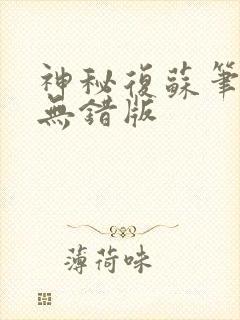 神秘復蘇筆
無錯版
薄荷味